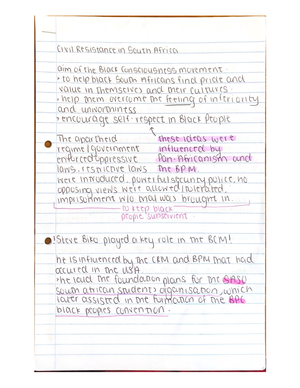 Civil Resistance in South Africa
Aim of the Black Consciousness movement.
• to help black South Africans find pride and
value in themselves and their cultures
• help them overcome the feeling of inferiority
and unworthiness
• encourage self-respect in Black People
The apartheid
regime/government
enforced oppressive
laws, restrictive laws
these ideas were
influenced by
Pan-Africanism and
the BPM.
were introduced, powerful security police, no
opposing views were allowed/tolerated,
imprisonment w/o trial was brought in.
to keep black
people subservient
!Steve Biko played a key role in the BCM!
he is influenced by the CRM and BPM that had
occured in the USA.
• he laid the foundation plans for the SASO
south african students organisation, which
later assisted in the formation of the BPC
black peoples convention.